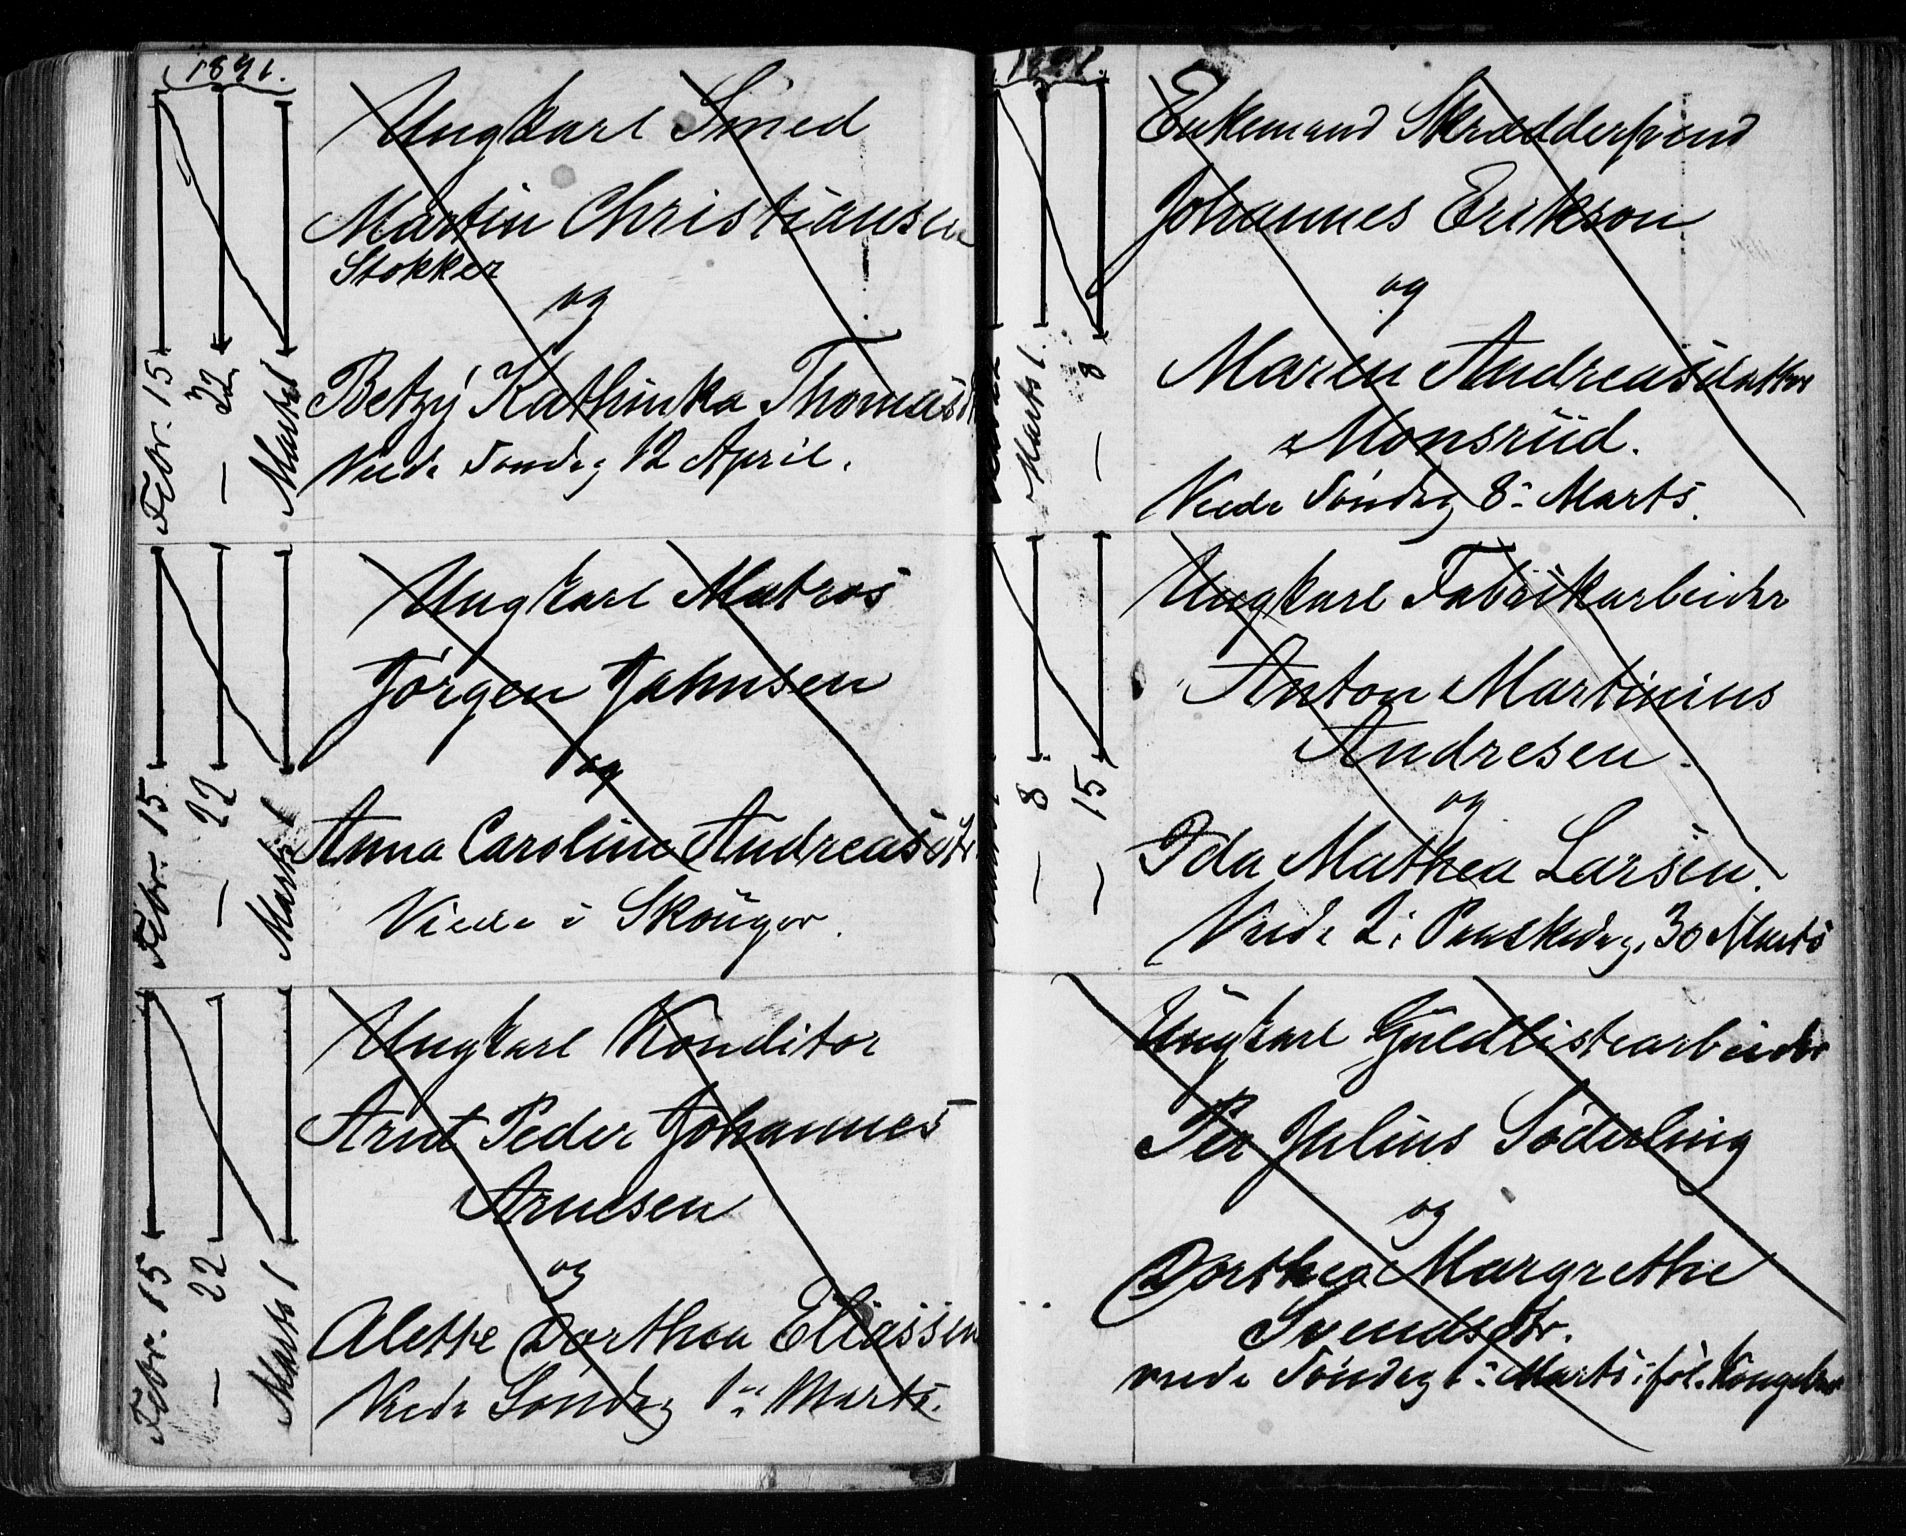 1891.
Febr. 15
— 22
Marts 1
Ungkarl Smed
Martin Christiansen
Stokker
og
Betzy Kathinka Thomasd
Viede Søndag 12 April.
Febr. 15
— 22
Marts 1
Ungkarl Matros
Jörgen Jahnsen
og
Anna Caroline Andreasdtr
Viede i Skouger.
Febr. 15
— 22
Marts 1
Ungkarl Konditor
Arnt Peder Johannes
Arnesen
og
Alette Dorthea Eliassen
Viede Søndag 1ste Marts.
1891.
Marts 1.
— 8
Enkemand Skræddersvend
Johannes Erikson
og
Maren Andreasdatter
Monsrud.
Viede Søndag 8: Marts.
— 8
— 15
Ungkarl Fabrikarbeider
Anton Martinius
Andresen.
og
Ida Mathea Larsen.
Viede 2: Paaskedag, 30 Marts
Ungkarl Guldlistearbeider
Per Julius Söderling
og
Dorthea Margrethe
Svendsdtr.
viede Søndag 1: Marts i føl.